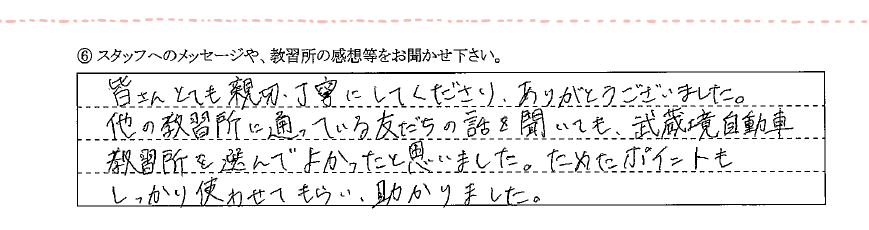 ⑥ スタッフへのメッセージや、教習所の感想等をお聞かせ下さい。
皆さんとても親切、丁寧にしてくださり、ありがとうございました。
他の教習所に通っている友だちの話を聞いても、武蔵境自動車
教習所を選んでよかったと思いました。ためたポイントも
しっかり使わせてもらい、助かりました。